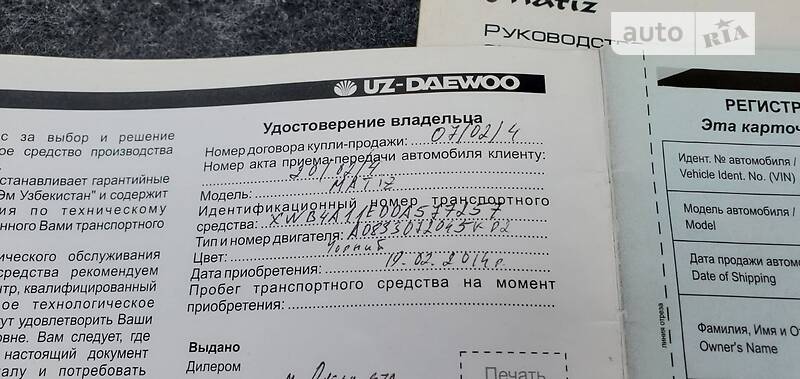 Matiz
РУКОВОДСТВО
auto RIA
UZ-DAEWOO
Удостоверение владельца
Номер договора купли-продажи: 07/02/4
Номер акта приема-передачи автомобилЯ клиенту:
Модель: MATIZ
Идентификационный номер транспортного
средства: XWB4A11EDDA577257
Тип и номер двигателя:
Цвет: Чорний
Дата приобретения: 19.02.2014г.
Пробег транспортного средства на момент
приобретения:
Выдано
Дилером
Печать
с за выбор и решение
ое средство производства
станавливает гарантийные
Эм Узбекистан" и содержит
ия по техническому
нного Вами транспортного
ического обслуживания
средства рекомендуем
нтр, квалифицированный
ое технологическое
ут удовлетворить Ваши
овне. Вам следует, где
настоящий документ
алу и потребовать
РЕГИСТР
Эта карточ
Идент. № автомобиля /
Vehicle Ident. No. (VIN)
Модель автомобиля /
Model
Дата продажи автомо
Date of Shipping
Фамилия, Имя и От
Owner's Name
линия отреза